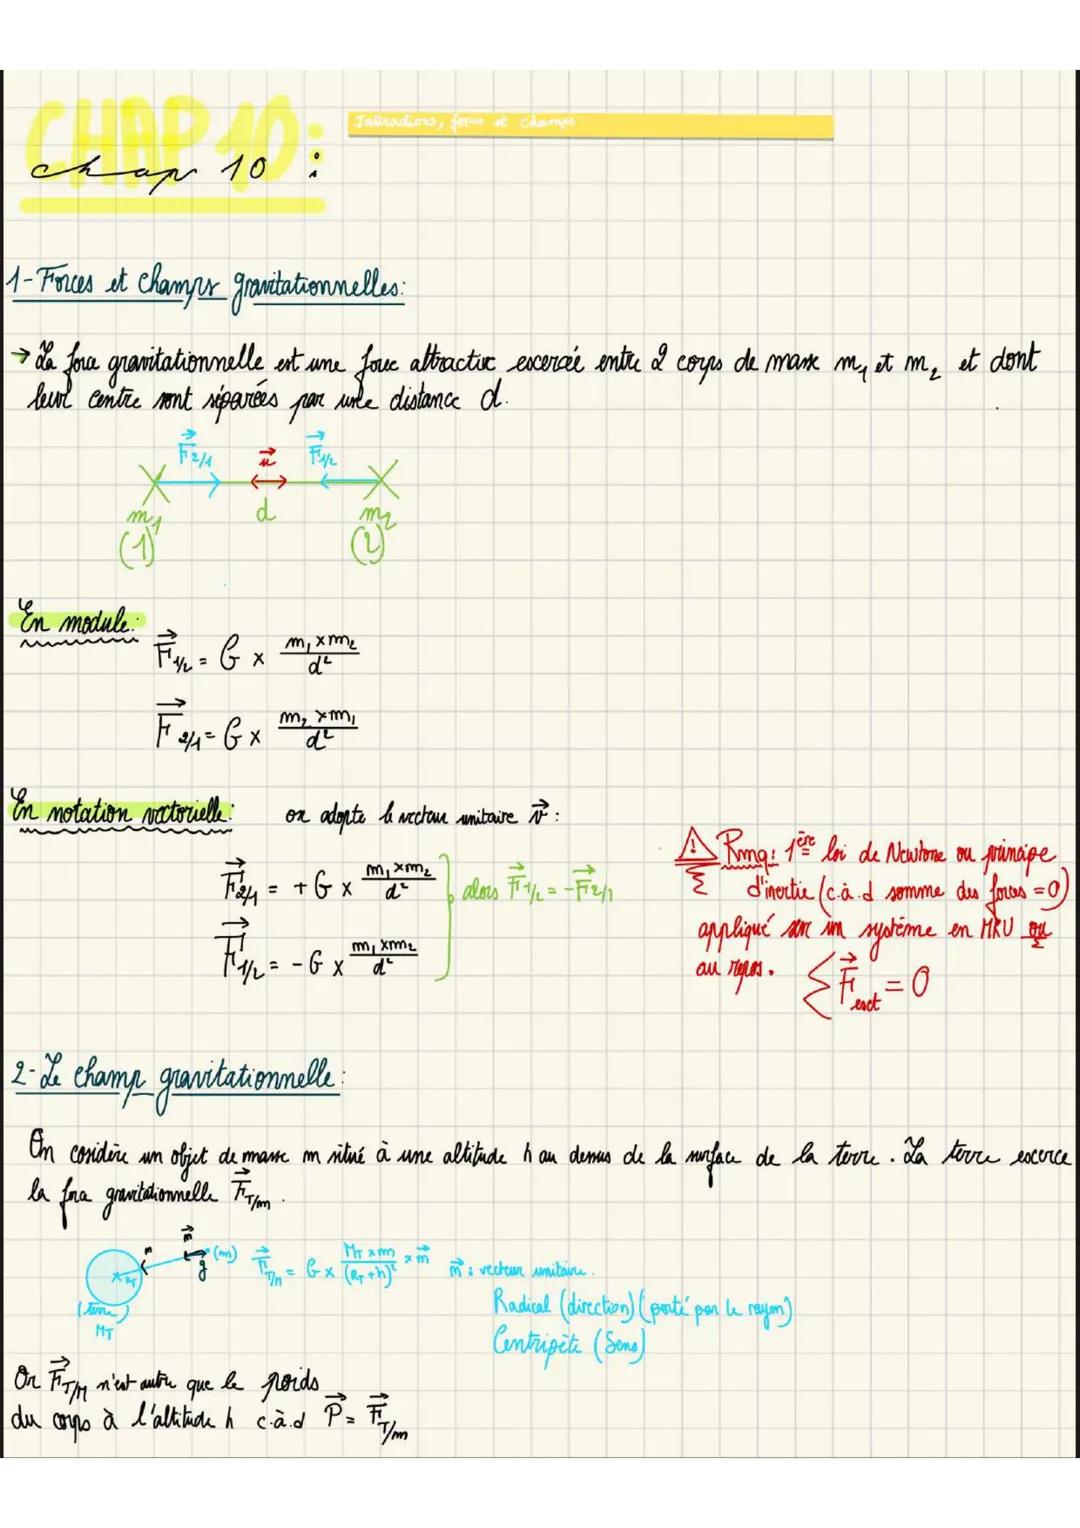 CHAP 10:
chap 10 :
Interactions, forces et champs
1- Forces et champs gravitationnelles:
→ La force gravitationnelle est une force attractive escercée entre 2 corps de masse m₁ et m₂ et dont
leur centre sont séparées par une distance d.
F⃗2/1 u⃗ F⃗1/2
m₁ d m₂
(1) (2)
En module:
F⃗1/2 = G × m₁ × m₂ / d²
F⃗2/1 = G × m₂ × m₁ / d²
En notation vectorielle: on adopte le vecteur unitaire v⃗ :
F⃗2/1 = + G × m₁ × m₂ / d²
F⃗1/2 = - G × m₁ × m₂ / d²
alors F⃗1/2 = -F⃗2/1
! Rmq: 1ère loi de Newtone ou principe
d'inertie (c.à.d somme des forces = 0)
appliqué sur un système en MRU ou
au repos. Σ F⃗ext = 0
2- Le champ gravitationnelle:
On cosidère un objet de masse m situé à une altitude h au dessus de la surface de la terre. La terre escerce
la force gravitationnelle F⃗T/m.
n⃗ (m) F⃗T/m = G × MT × m / (RT + h)² × n⃗ n⃗ : vecteur unitaire.
g
RT
(terre)
MT
Radical (direction) (porté par le rayon)
Centripète (Sens)
Or F⃗T/M n'est autre que le poids
du corps à l'altitude h c.à.d P⃗ = F⃗T/m